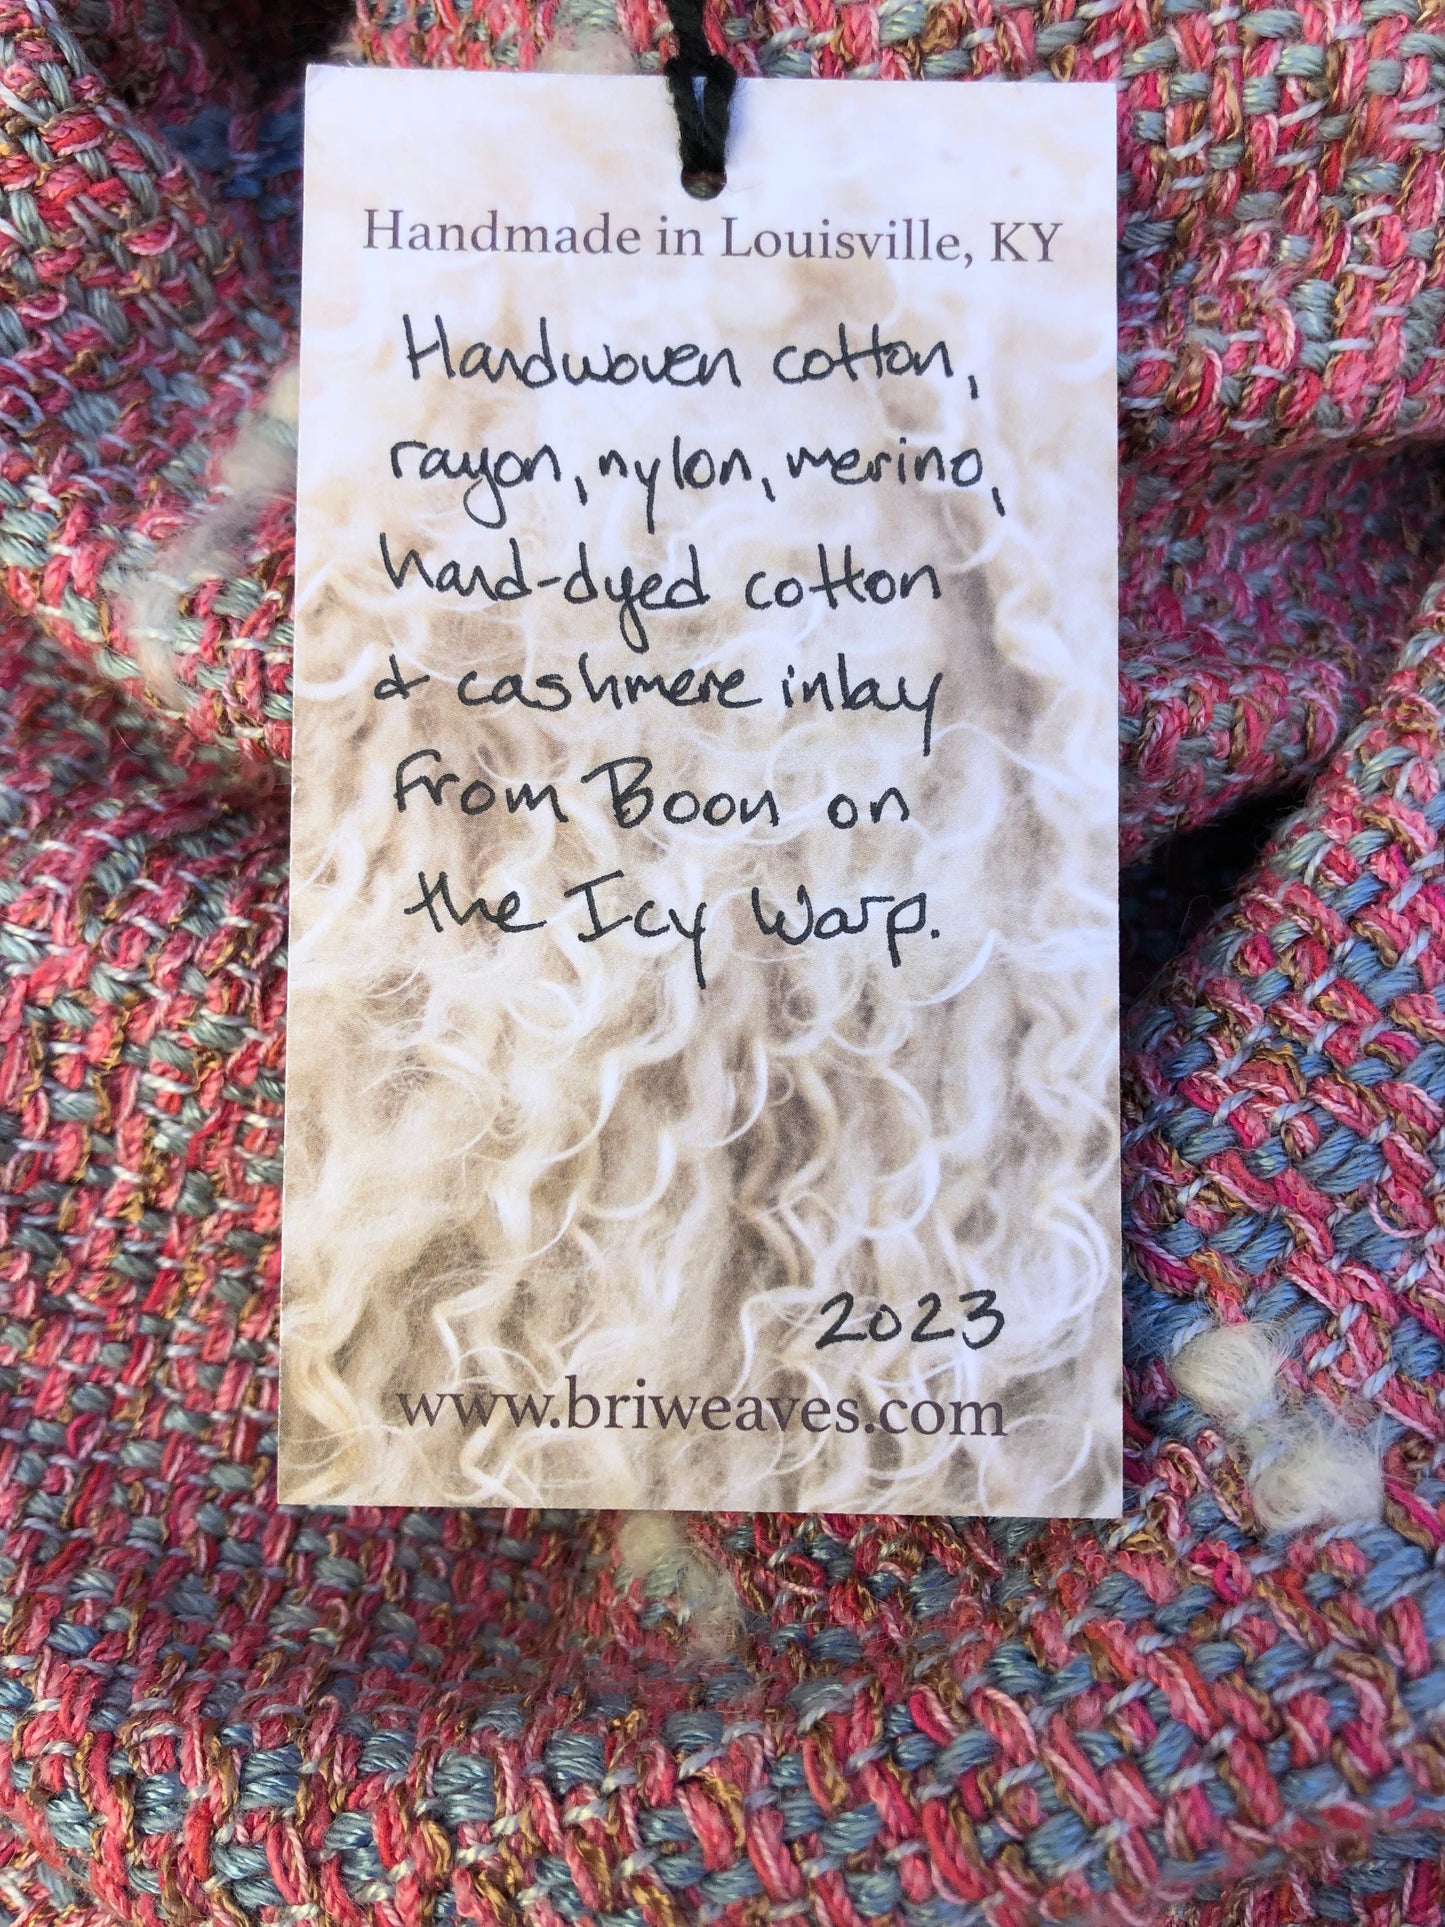 Handmade in Louisville, KY
Handwoven cotton,
rayon, nylon, merino,
hand-dyed cotton
& cashmere inlay
from Boon on
the Icy Warp.
2023
www.briweaves.com